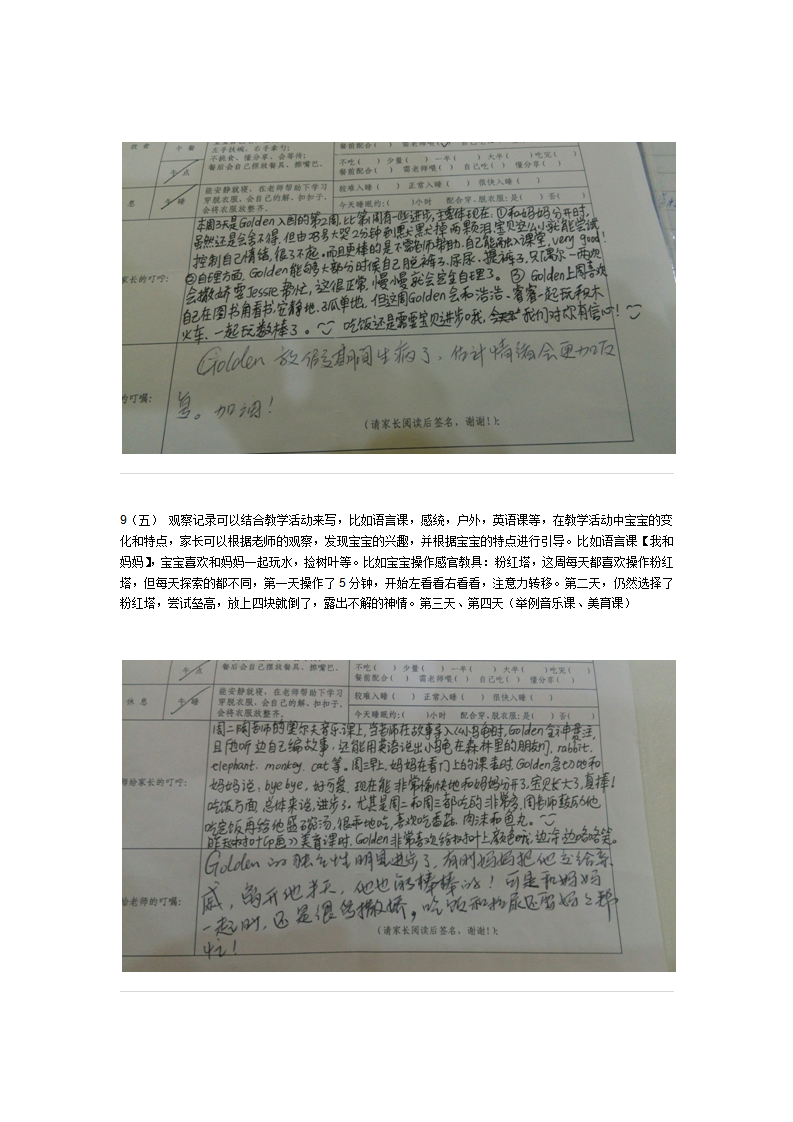 午餐
左手扶碗，右手拿勺；
不挑食、懂分享、会等待；
餐后会自己摆放餐具、擦嘴巴。
餐前配合（ ） 需老师喂（
午点
不吃（ ）少量（ ）一半（ ）大半（ ）吃完（ ）
餐前配合（ ） 需老师喂（ ） 自己吃（ ） 懂分享（ ）
息
午睡
能安静就寝，在老师帮助下学习
穿脱衣服，会自己的解、扣扣子，
会将衣服放整齐。
较难入睡（ ） 正常入睡（ ） 很快入睡（ ）
今天睡眠约:（ ）小时 配合穿、脱衣服:是（ ）否（ ）
家长的叮咛:
本周3天是Golden入园的第2周，比第1周有一些进步，主要体现在：①和妈妈分开时，
虽然还是会舍不得，但由 大哭2分钟到 掉两颗泪，宝贝这么小就能尝试
控制自己情绪，很了不起。而且更棒的是不需老师帮助，自己能融入课堂，very good!
②自理方面，Golden能够大部分时候自己脱裤子、尿尿、提裤子，只偶尔一两次
会撒娇要Jessie帮忙，这很正常，慢慢就会完全自理了。③ Golden上周喜欢
自己在图书角看书，安静地、孤单地，但这周Golden会和浩浩、睿睿一起玩积木
火车、一起玩数棒了。吃饭还是需要宝贝进步哦，我们对你有信心！
Golden 放假期间生病了，估计情绪会更加反
复。加油！
的叮嘱:
（请家长阅读后签名，谢谢!）:
9（五） 观察记录可以结合教学活动来写，比如语言课，感统，户外，英语课等，在教学活动中宝宝的变
化和特点，家长可以根据老师的观察，发现宝宝的兴趣，并根据宝宝的特点进行引导。比如语言课【我和
妈妈】，宝宝喜欢和妈妈一起玩水，捡树叶等。比如宝宝操作感官教具：粉红塔，这周每天都喜欢操作粉红
塔，但每天探索的都不同，第一天操作了5分钟，开始左看看右看看，注意力转移。第二天，仍然选择了
粉红塔，尝试垒高，放上四块就倒了，露出不解的神情。第三天、第四天（举例音乐课、美育课）
午点
餐后会自己摆放餐具、擦嘴巴。
不吃（ ）少量（ ）一半（ ）大半（ ）吃完（ ）
餐前配合（ ） 需老师喂（ ） 自己吃（ ） 懂分享（ ）
休息
午睡
能安静就寝，在老师帮助下学习
穿脱衣服，会自己的解、扣扣子，
会将衣服放整齐。
较难入睡（ ） 正常入睡（ ） 很快入睡（ ）
今天睡眠约:（ ）小时 配合穿、脱衣服:是（ ）否（ ）
师给家长的叮咛:
周二陶老师的奥尔夫音乐课上，当老师在故事导入《小乌龟》时，Golden全神贯注，
且边听边自己编故事，还能用英语说出小乌龟在森林里的朋友们，rabbit.
elephant. monkey. cat等。周三早上，妈妈在看门上的课表时Golden急切地和
妈妈说：bye bye，好可爱，现在能非常愉快地和妈妈分开了，宝贝长大了，真棒！
吃饭方面，总体来说，进步了，尤其是周二和周三都吃的非常多，周老师鼓励他
吃完饭再给他盛碗汤，很开心地吃，喜欢吃香菇、肉沫和鱼丸。
树叶印画》美育课时，Golden非常喜欢给树叶上颜色呢，边涂边咯咯笑。
Golden的独立性明显进步了，有时妈妈把他交给亲
戚，离开他半天，他也能棒棒的！可是和妈妈
一起时，还是很能撒娇，吃饭和拉尿还要妈妈帮
忙！
给老师的叮嘱:
（请家长阅读后签名，谢谢!）: